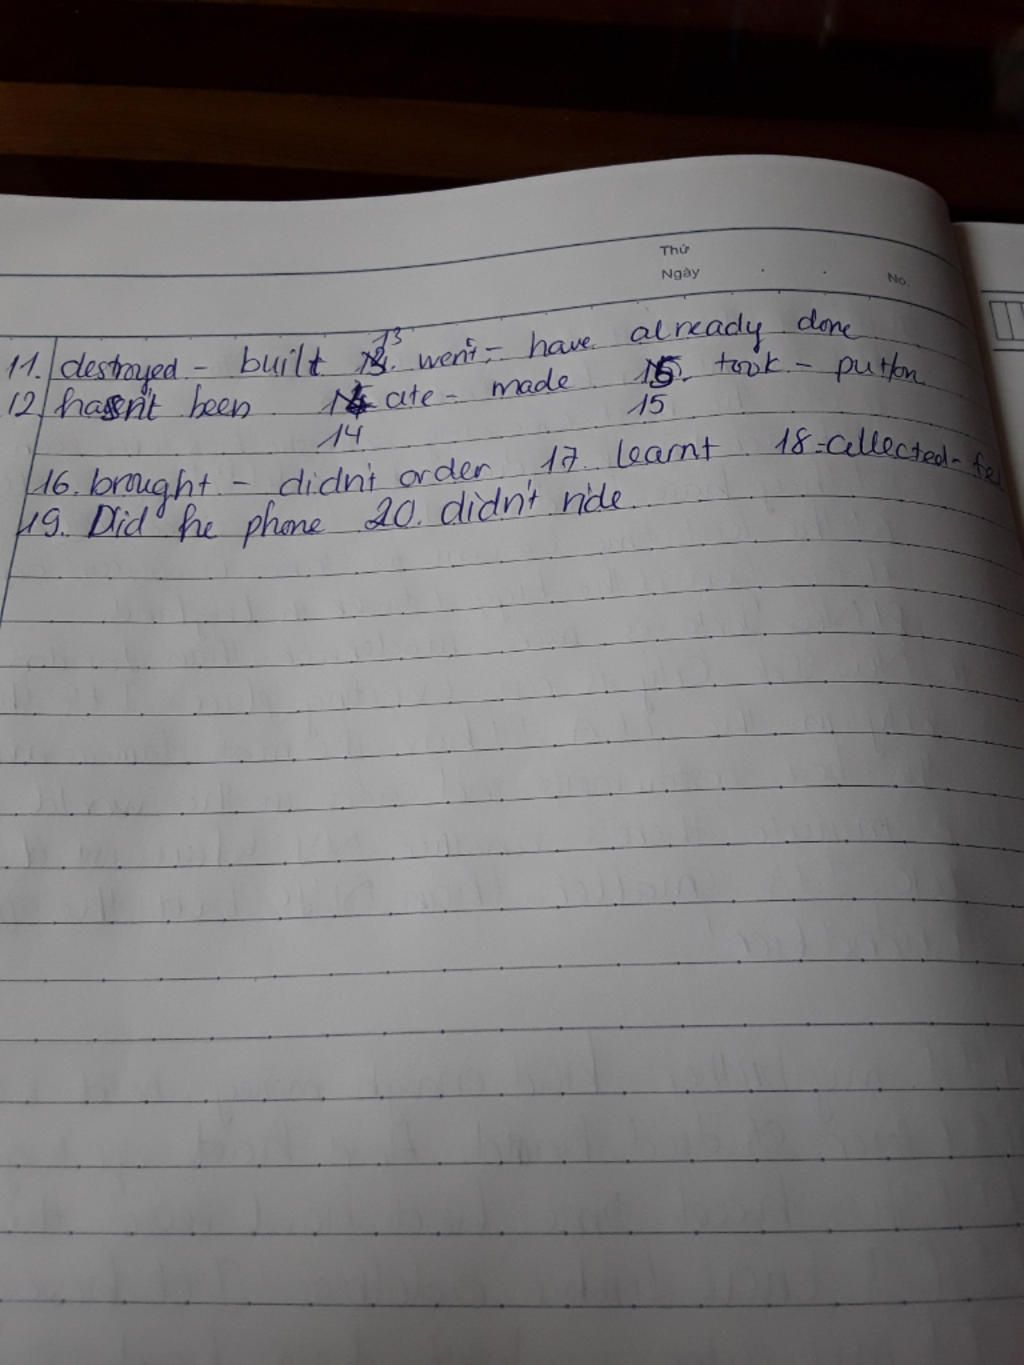 Thứ
Ngày . . No.
11. destroyed - built 13. went - have already done
12. hasn't been 14 ate - made 15. took - put on
14 15
16. brought - didn't order 17. learnt 18. collected -
19. Did he phone 20. didn't ride